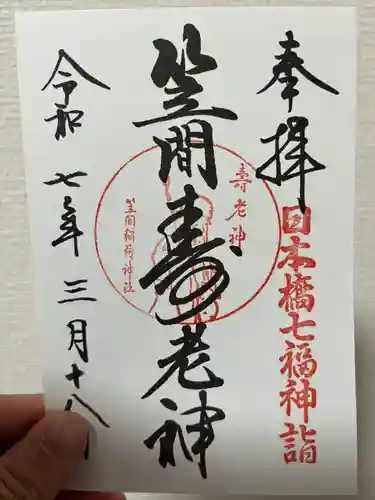 奉拝
日本橋七福神詣
笠間寿老神
寿老神
笠間稲荷神社
令和七年三月十八日